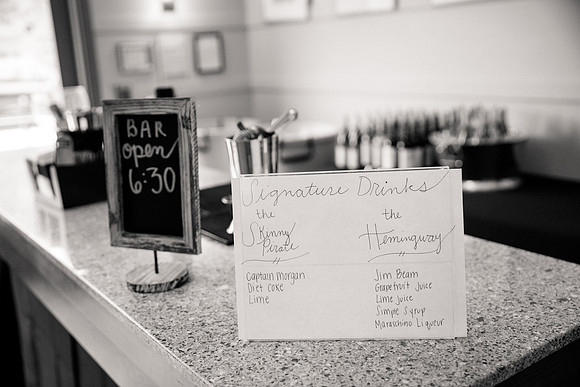 BAR
open
6:30
Signature Drinks
the
Skinny
Pirate
Captain Morgan
Diet Coke
Lime
the
Hemingway
Jim Beam
Grapefruit Juice
Lime Juice
Simple Syrup
Maraschino Liqueur